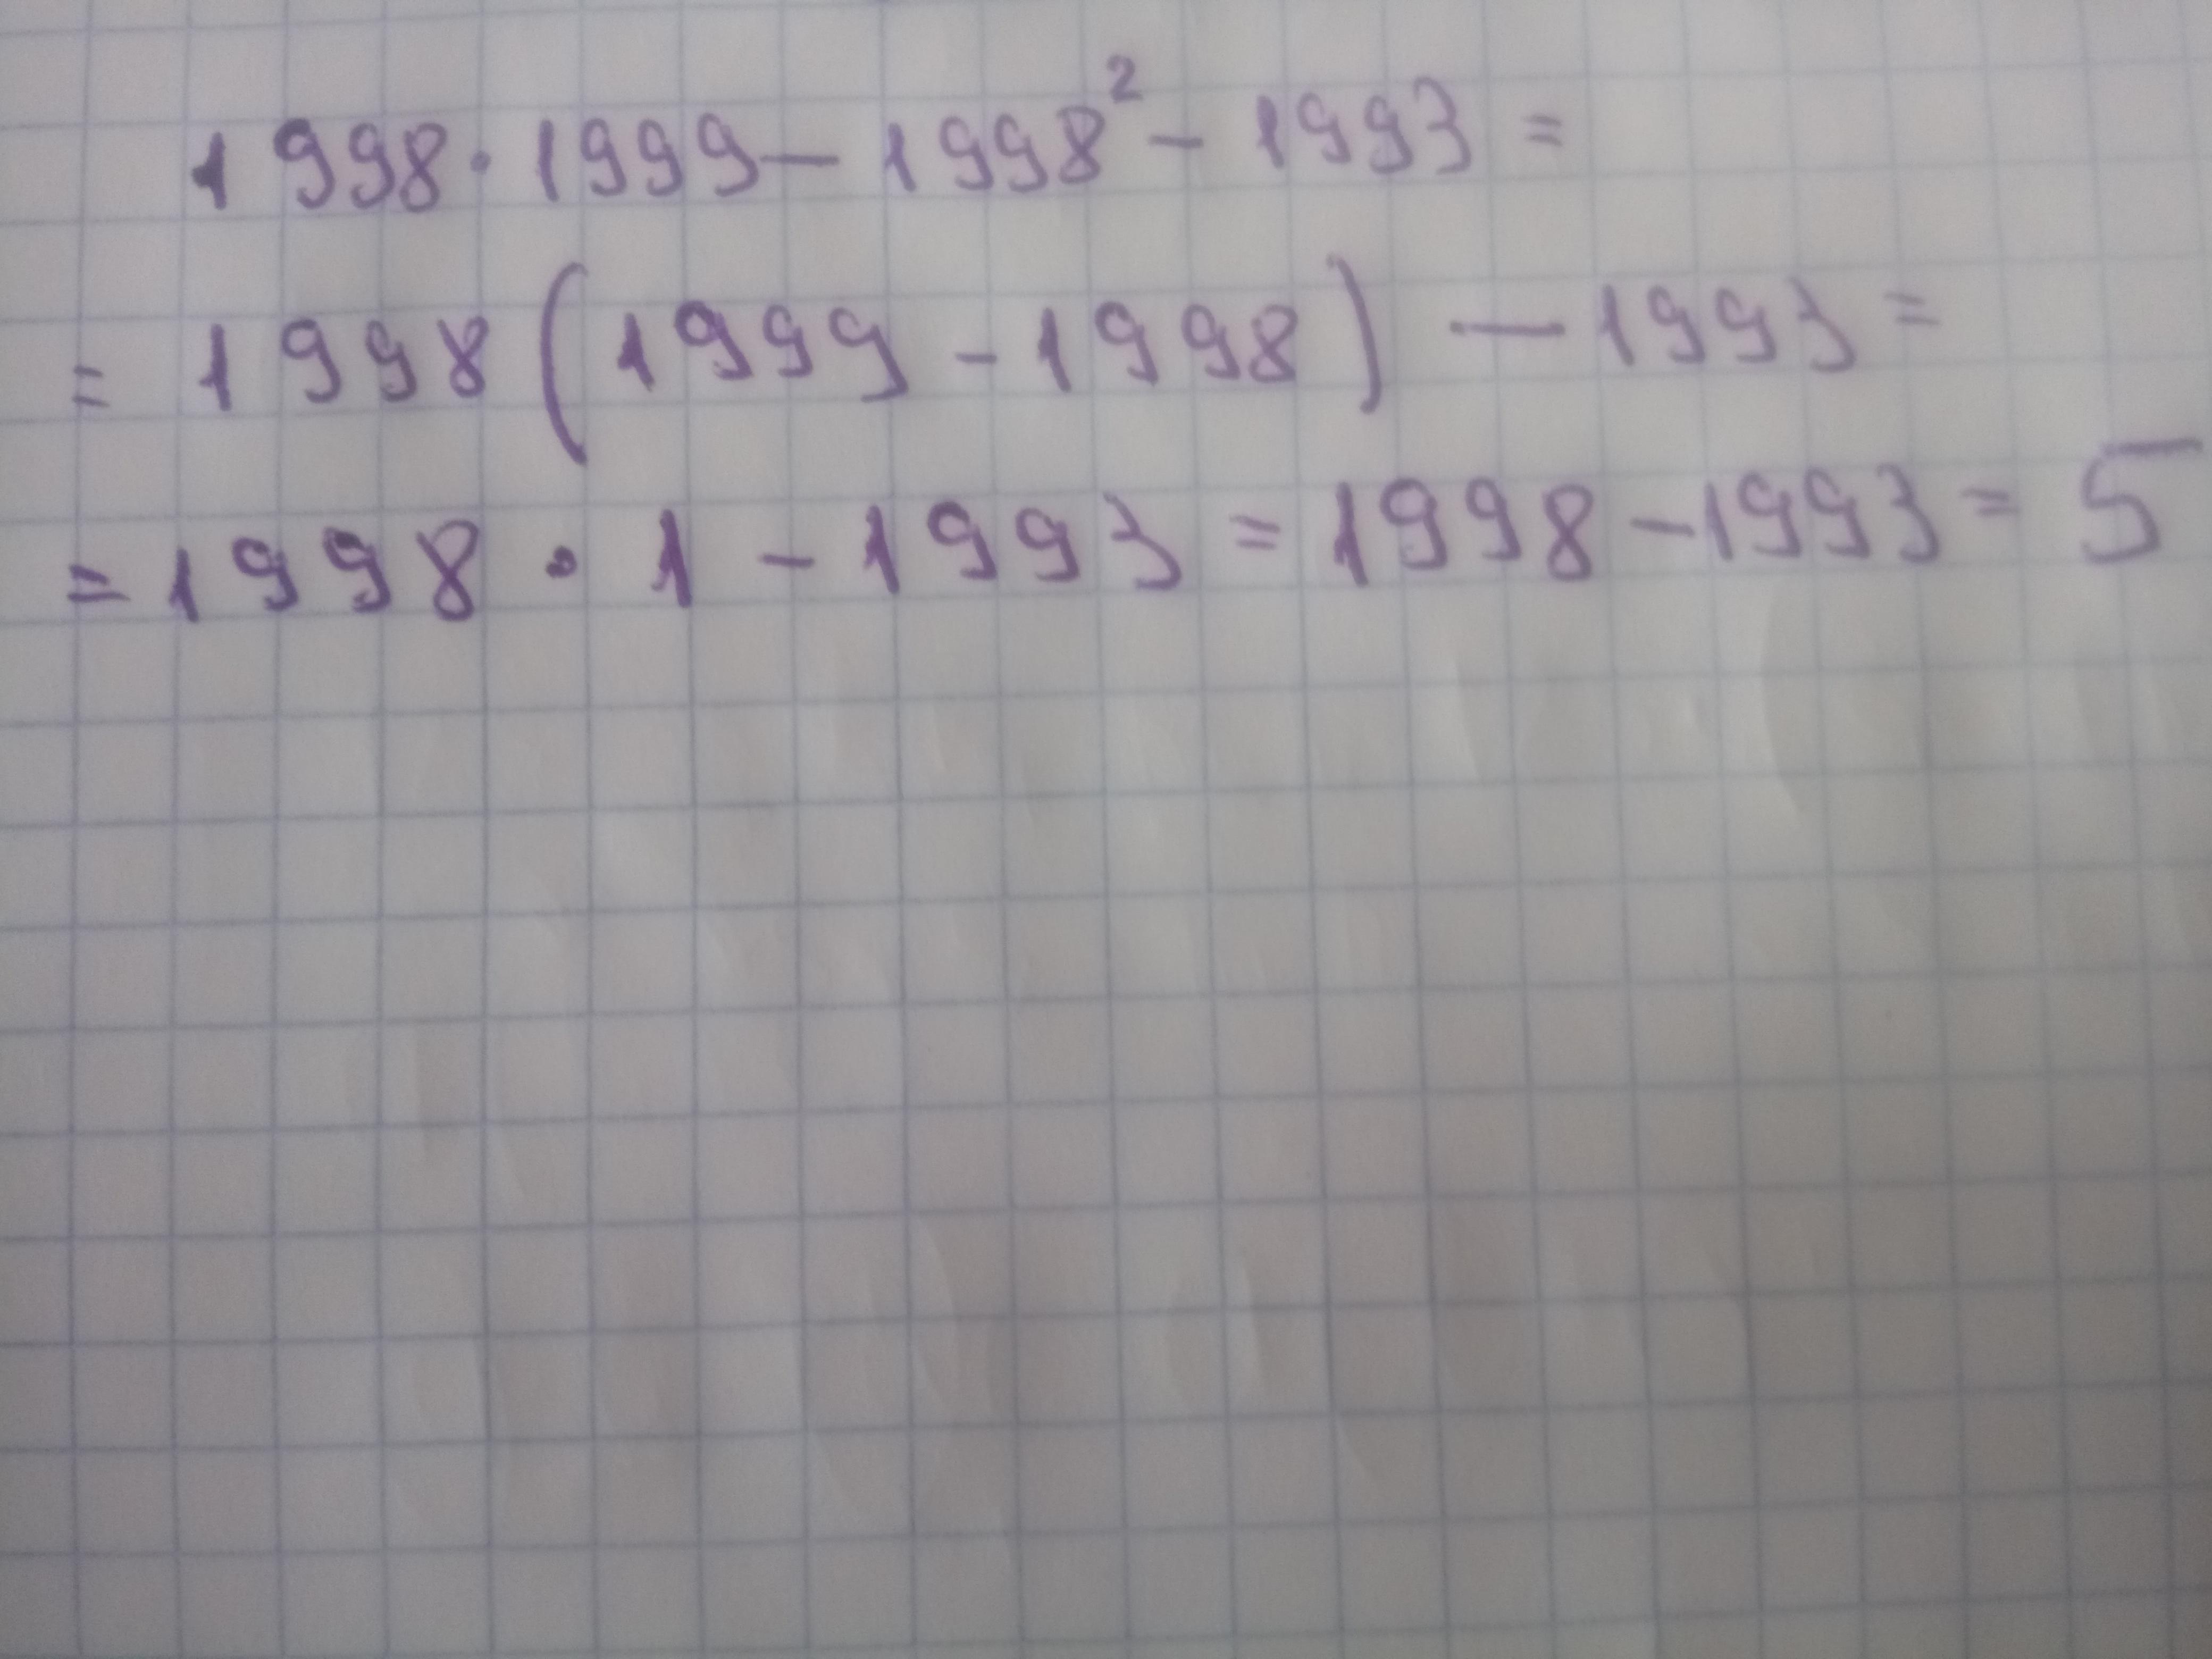 1998·1999-1998²-1993=
=1998(1999-1998)-1993=
=1998·1-1993=1998-1993=5